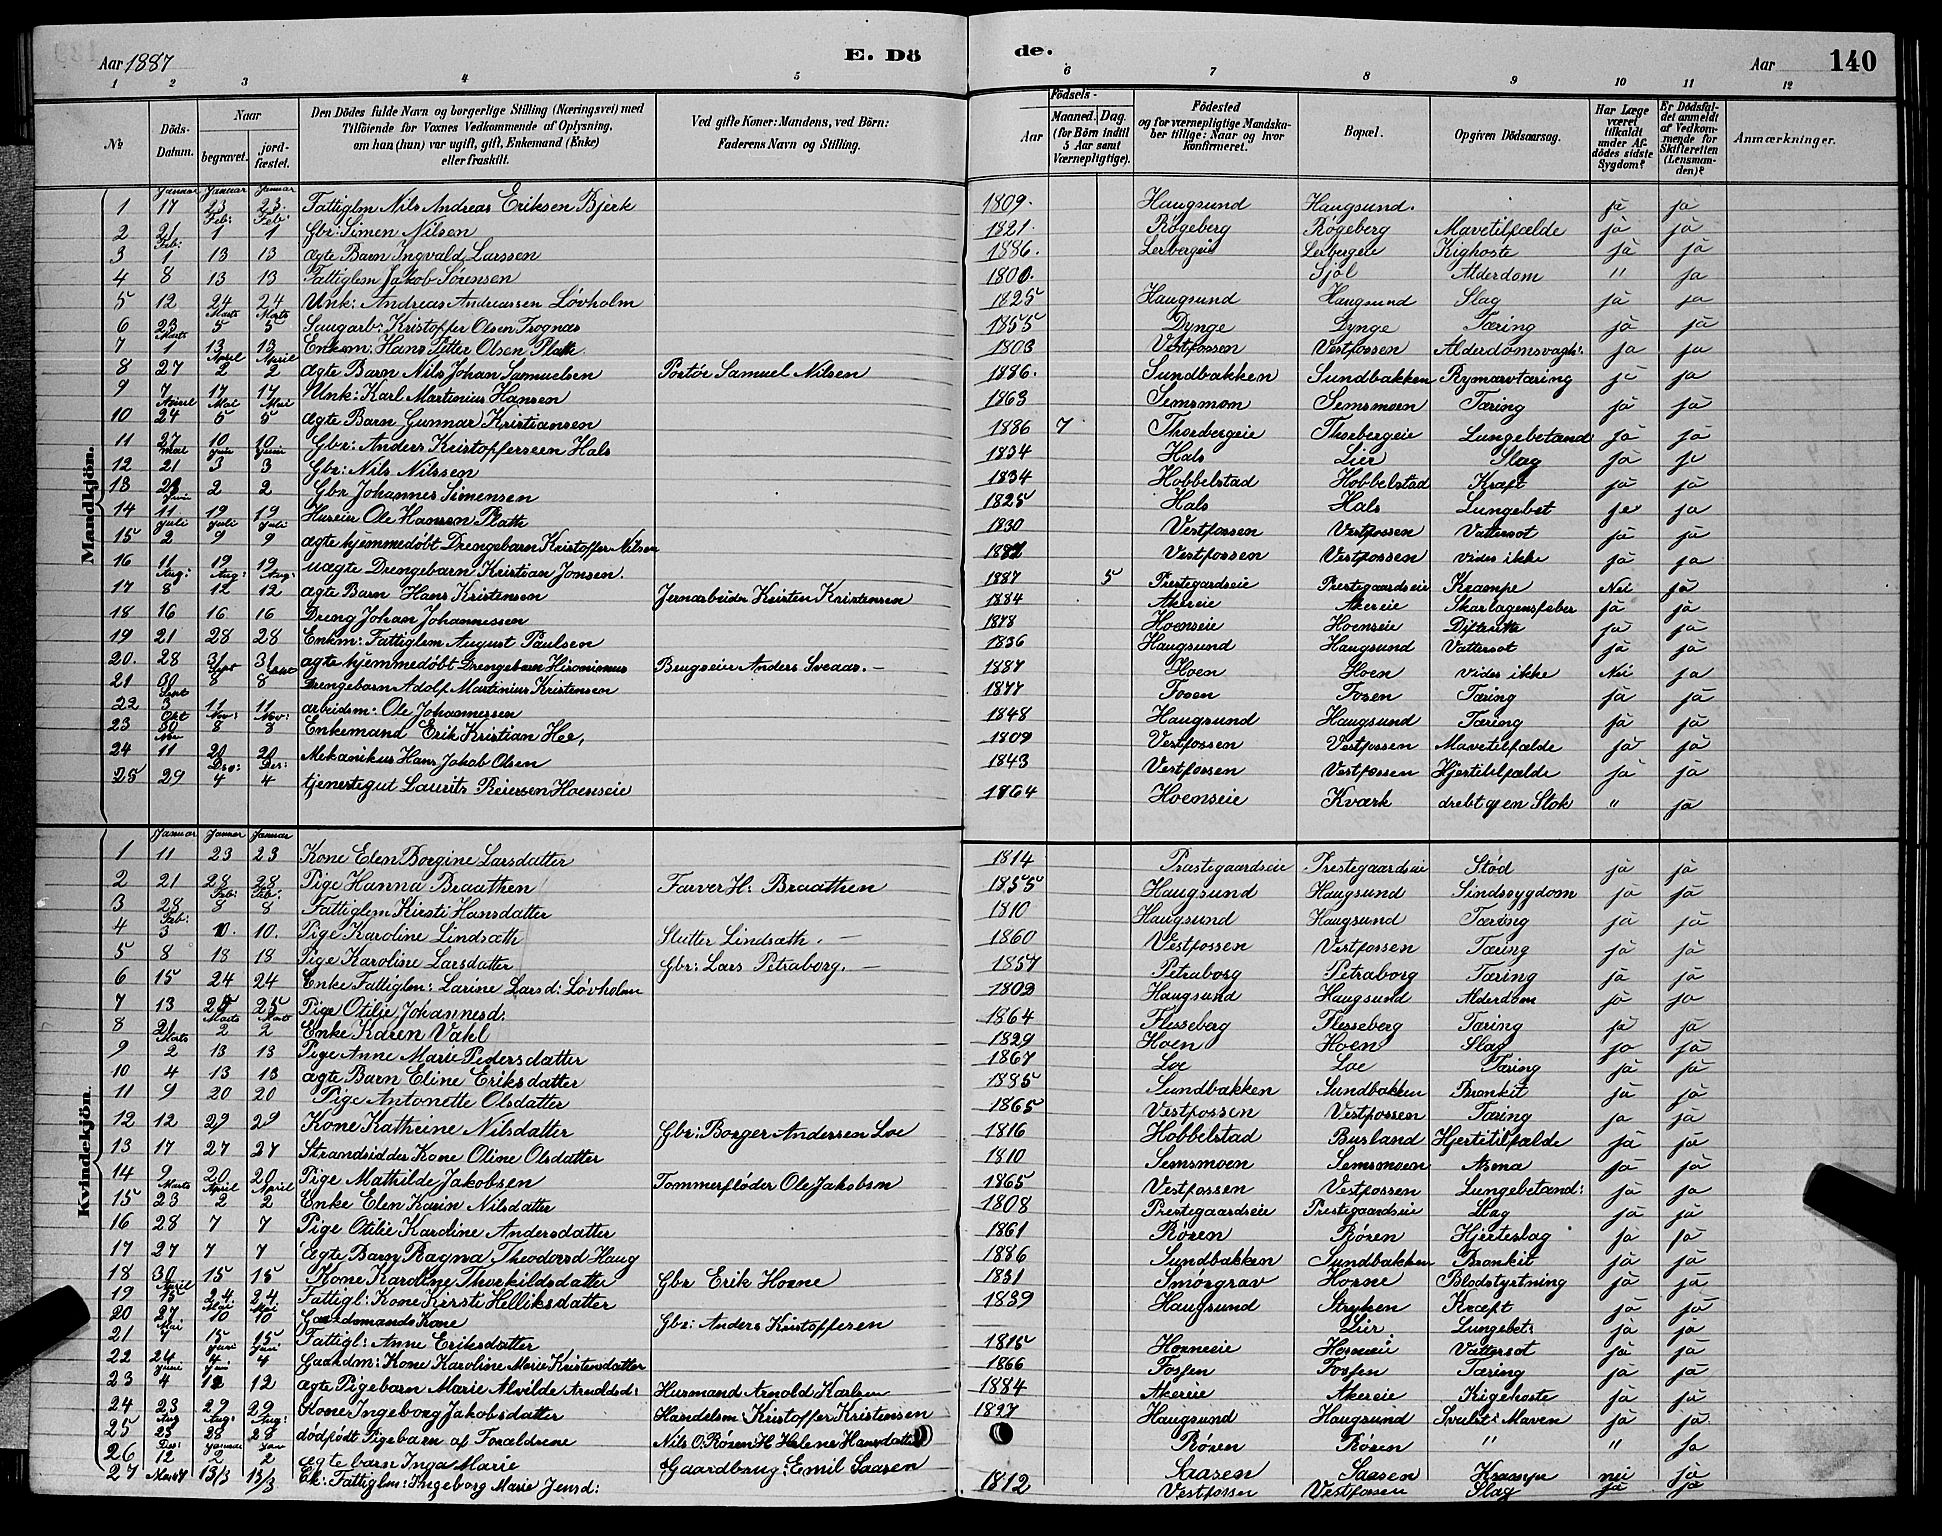 Aar 1887 E. Dö
de. Aar 140
1 2 3 4 5 6 7 8 9 10 11 12
№ Döds-Datum. Naar begravet. jord-fæstet. Den Dödes fulde Navn og borgerlige Stilling (Næringsvei) med Tilföiende for Voxnes Vedkommende af Oplysning, om han (hun) var ugift, gift, Enkemand (Enke) eller fraskilt. Ved gifte Koner: Mandens, ved Börn: Faderens Navn og Stilling. Födsels- Aar Maaned. Dag. (for Börn indtil 5 Aar samt Værnepligtige). Födested og for værnepligtige Mandskaber tillige: Naar og hvor konfirmeret. Bopæl. Opgiven Dödsaarsag. Har Læge været tilkaldt under Afdödes sidste Sygdom? Er Dödsfaldet anmeldt af Vedkommende for Skifteretten (Lensmanden)? Anmærkninger.
Mandkjön.
Januar Januar Januar
1 17 23 23. Fattiglm Nils Andreas Eriksen Bjerk 1809. Haugsund Haugsund. ja ja
Feb: Feb:
2 21 1 1 Gbr: Simen Nilsen 1821. Røgeberg Røgeberg Mavetilfælde ja ja
Feb:
3 1 13 13 ægte Barn Ingvald Larssen 1886. Lerbergeie Lerbergeie Kighoste ja ja
4 8 13 13 Fattiglem Jakob Sørensen 1800. Sjøl Alderdom " ja
5 12 24 24 Unk: Andreas Andreassen Løvholm 1825 Haugsund Haugsund Slag ja ja
Marts Marts
6 23 5 5 Saugarb: Kristoffer Olsen Trognæs 1855 Dynge Dynge Tæring ja ja
Marts
7 1 13 13 Enkem: Hans Petter Olsen Plath 1803 Vestfossen Vestfossen Alderdomsvagh: ja ja
April April
8 27 2 2 ægte Barn Nils Johan Samuelsen Portør Samuel Nilsen 1886. Sundbakken Sundbakken Rymarvtæring ja ja
9 7 17 17 Unk: Karl Martinius Hansen 1863 Semsmoen Semsmoen Tæring ja ja
April Mai Mai
10 24 5 5 ægte Barn Gunnar Kristiansen 1886 7 Thorbergeie Thorbergeie Lungebetænd: ja ja
11 27 10 10 Gbr: Anders Kristofferseen Hals 1834 Hals Lier Slag ja ja
Mai Juni Juni
12 21 3 3 Gbr: Nils Nilssen 1834 Hobbelstad Hobbelstad Kræft ja ja
13 23 2 2 Gbr Johannes Simensen 1825 Hals Hals Lungebet ja ja
Juni
14 11 19 19 Huseier Ole Hansen Plath 1830 Vestfossen Vestfossen Vattersot ja ja
Juli Juli Juli
15 2 9 9 ægte hjemmedøbt Drengebarn Kristoffer Nilsen 1887 Vestfossen Vestfossen vides ikke ja ja
16 11 19 19 uægte Drengebarn Kristian Jonsen. 1887 5 Prestegardseie Prestegaardseie Krampe Nei ja
Aug: Aug: Aug:
17 8 12 12 ægte Barn Hans Kristensen Jernarbeider Kristen Kristensen 1884 Akereie Akereie Skarlagensfeber ja ja
18 16 16 16 Dreng Johan Johannessen 1878 Hoenseie Hoenseie Difterite ja ja
19 21 28 28 Enkm: Fattiglem August Paulsen 1836 Haugsund Haugsund Vattersot ja ja
20. 28 31 31 ægte hjemmedøbt Drengebarn Hironimus Brugseier Anders Sveaas.— 1887 Hoen Hoen vides ikke Nei ja
Sept Sept
21 30 8 8 Drengebarn Adolf Martinius Kristensen 1877 Fosen Fosen Tæring ja ja
Sept
22 3 11 11 arbeidsm: Ole Johannessen 1848 Haugsund Haugsund Tæring ja ja
Okt Nov: Nov:
23 30 8 8 Enkemand Erik Kristian Hee, 1809 Vestfossen Vestfossen Mavetilfælde ja ja
Nov
24 11 20 20 Mekanikus Hans Jakob Olsen 1843 Vestfossen Vestfossen Hjertetilfælde ja ja
Des: Des:
25 29 4 4 tjenestegut Laurits Reiersen Hoenseie 1864 Hoenseie Kværk drebt af en Stok " ja
Kvindekjön.
Januar Januar Januar
1 11 23 23 Kone Elen Borgine Larsdatter 1814 Præstegaardseie Prestegaardseie Stød ja ja
2 21 28 28 Pige Hanna Braathen Farver H: Braathen 1855 Haugsund Haugsund Sindssygdom ja ja
Feb: Feb:
3 28 8 8 Fattiglem Kirsti Hansdatter 1810 Haugsund Haugsund Tæring ja ja
Feb:
4 3 10. 10. Pige Karoline Lindsæth Slutter Lindsæth.— 1860 Vestfossen Vestfossen Tæring ja ja
5 8 18 18 Pige Karoline Larsdatter Gbr: Lars Petraborg.— 1857 Petraborg Petraborg Tæring ja ja
6 15 24 24 Enke Fattiglm: Larine Larsd: Løvholm 1802 Haugsund Haugsund Alderdom ja ja
7 13 25 25 Pige Otilie Johannesd. 1864 Flesseberg Flesseberg Tæring ja ja
Marts Marts
8 21 2 2 Enke Karen Vahl 1829 Hoen Hoen Slag ja ja
Marts
9 2 13 13 Pige Anne Marie Pedersdatter 1867 Loe Loe Tæring ja ja
10 4 13 13 ægte Barn Eline Eriksdatter 1885 Sundbakken Sundbakken Bronkit ja ja
11 9 20 20 Pige Antonette Olsdatter 1865 Vestfossen Vestfossen Tæring ja ja
12 12 29 29 Kone Kathrine Nilsdatter Gbr: Borger Andersen Loe 1816 Hobbelstad Burland Hjertetilfælde ja ja
13 17 27 27 Strandsidder Kone Oline Olsdatter 1810 Semsmoen Semsmoen Asma ja ja
14 9 20 20 Pige Mathilde Jakobsen Tømmerfløder Ole Jakobsen 1865 Vestfossen Vestfossen Lungebetænd: ja ja
Marts April April
15 23 2 2 Enke Elen Karin Nilsdatter 1808 Prestegaardseie Prestegaardseie Slag ja ja
16 28 7 7 Pige Otilie Karoline Andersdatter 1861 Røren Røren Hjerteslag ja ja
17 27 7 7 ægte Barn Ragna Theodorsd Haug 1886 Sundbakken Sundbakken Bronkit ja ja
18 30 15 15 Kone Karoline Thorkildsdatter Gbr Erik Horne 1831 Smørgrav Horne Blodstyrtning ja ja
April
19 15 24. 24. Fattigl: Kone Kirsti Helliksdatter 1839 Haugsund Stryken Kræft ja ja
Mai Mai
20 27 10 10 Gaardmands Kone Gbr: Anders Kristoffersen Lier Lungebet: ja ja
Mai
21 7 15 15 Fattigl: Anne Eriksdatter 1815 Horneeie Horneeie Vattersot ja ja
Juni Juni
22 24 4 4 Gaardm: Kone Karoline Marie Kristensdatter 1866 Fossen Fossen Tæring ja ja
Juni
23 4 12 12 ægte Pigebarn Marie Alvilde Arnoldsd: Husmand Arnold Karlsen 1884 Akereie Akereie Kigehoste ja ja
24 23 29 29 Kone Ingeborg Jakobsdatter Handelsm: Kristoffer Kristensen 1827 Haugsund Haugsund Svulst i Maven ja ja
Aug Aug: Aug:
25 23 28 28 dødfødt Pigebarn af Forældrene Nils O. Røren: H Helene Hansdatter Røren Røren " " ja
Des: Januar Jan
26 12 2 2 ægte barn Inga Marie Gaardbrug: Emil Saasen Saasen Saasen Krampe nei ja
27 13/3 13/3 Ek: Fattiglm: Ingeborg Marie Jensd: 1812 Vestfossen Vestfossen Slag ja ja